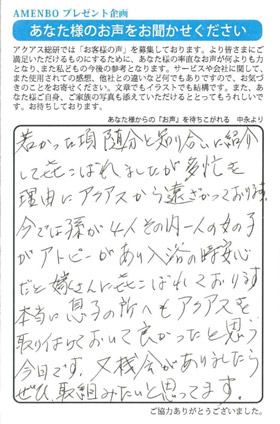 AMENBO プレゼント企画
あなた様のお声をお聞かせください
アクアス総研では「お客様の声」を募集しております。より皆さまにご
満足いただけるものにするために、あなた様の率直なお声が何よりも力
となり、また私どもの今後の参考となります。サービスや会社に関して、
また使用されての感想、他社との違いなど何でもありですので、お気づ
きのことをお寄せください。文章でもイラストでも結構です。また、あな
た様ご自身、ご家族の写真も添えていただけるととってもうれしいで
す。お待ちしております。
あなた様からの「お声」を待ちこがれる 中永より
若かった頃 随分と知り合いに紹介
して㐂こばれましたが多忙を
理由にアクアスから遠ざかっております。
今では孫が4人その内一人の女の子
がアトピーがあり入浴の時安心
だと嫁さんに㐂こばれております
本当に息子の所へもアクアスを
取り付けておいて良かったと思う
今日です。又機会がありましたら
ぜひ取組みたいと思ってます。
ご協力ありがとうございました。